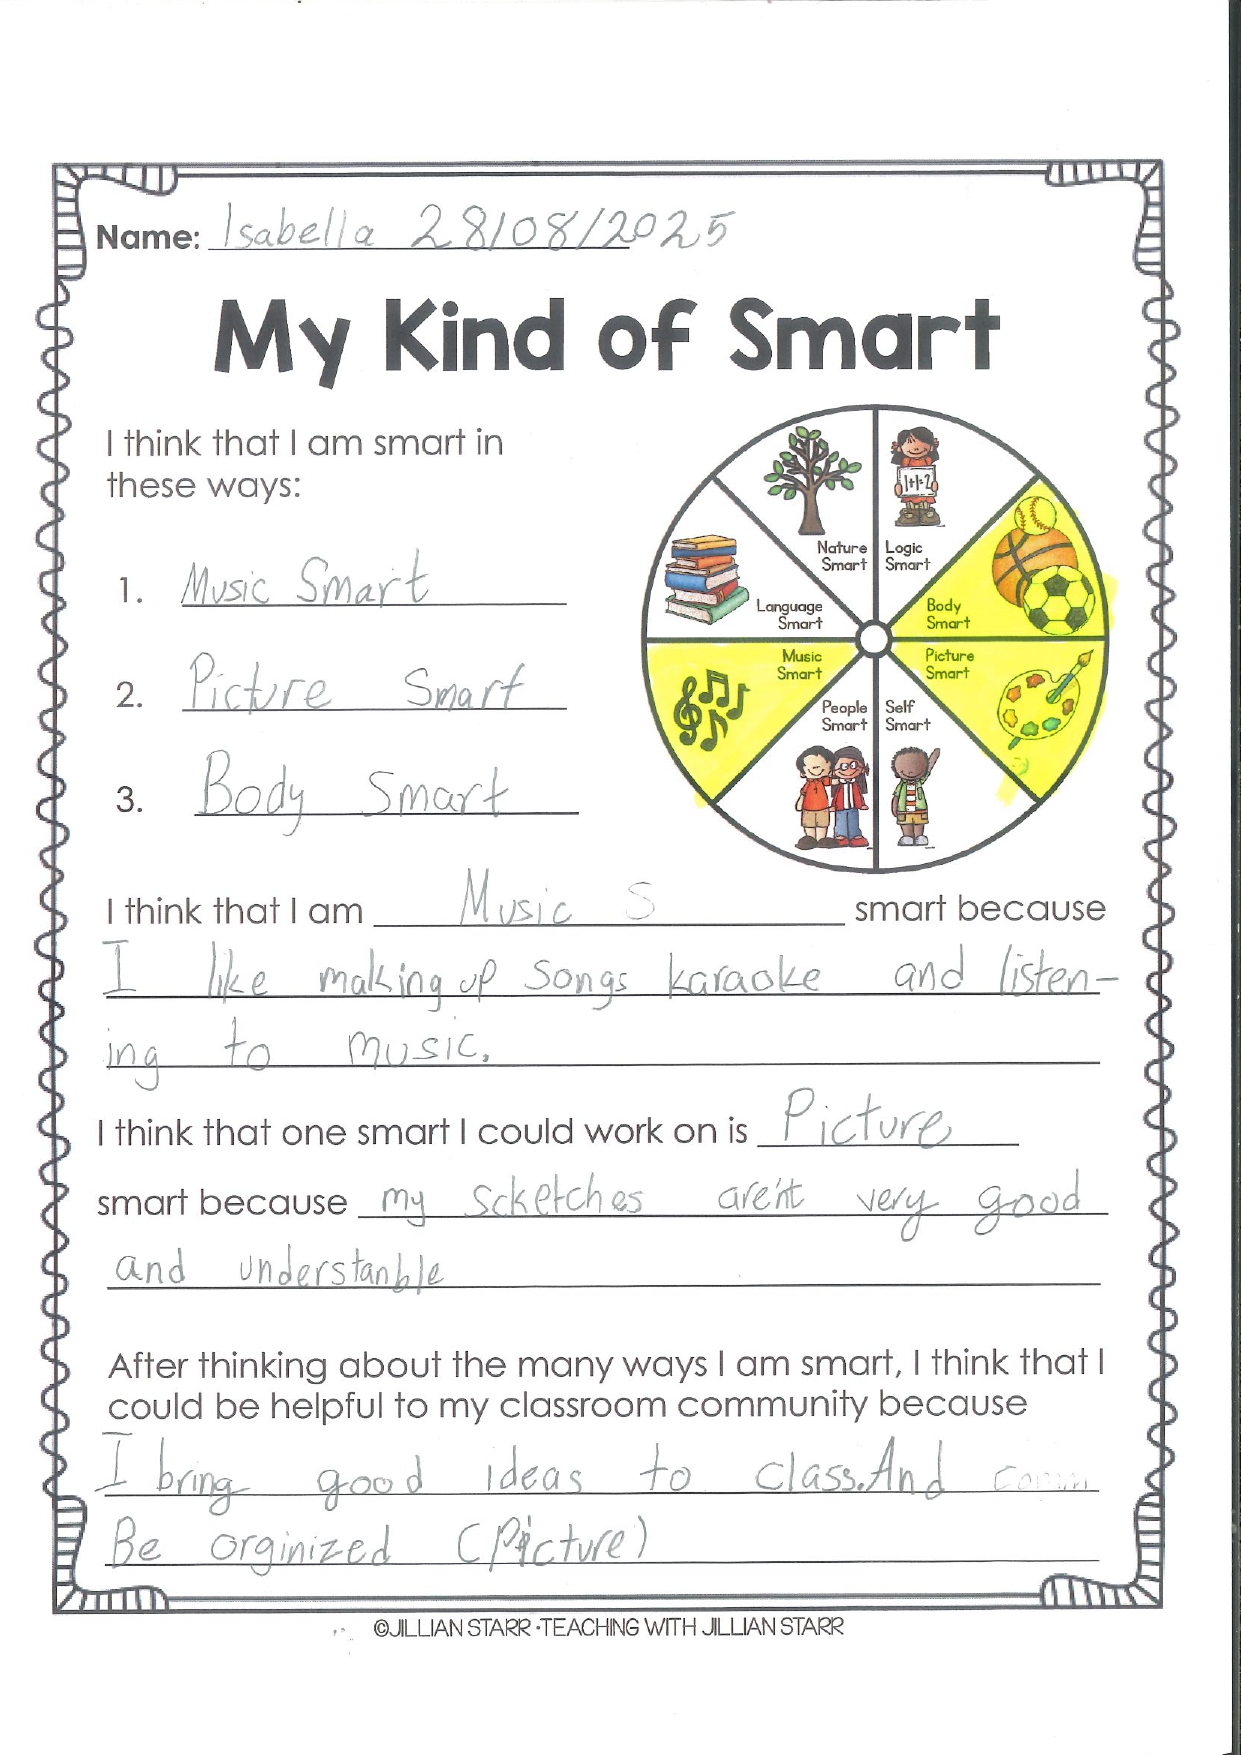 Name: Isabella 28/08/2025
My Kind of Smart
I think that I am smart in
these ways:
1. Music Smart
2. Picture Smart
3. Body Smart
Nature
Smart
Logic
Smart
Language
Smart
1+1=2
Body
Smart
Music
Smart
Picture
Smart
People
Smart
Self
Smart
I think that I am Music S smart because
I like making up songs karaoke and listen-
ing to music.
I think that one smart I could work on is Picture
smart because my scketches are'nt very good
and understanble
After thinking about the many ways I am smart, I think that I
could be helpful to my classroom community because
I bring good ideas to class.And
Be orginized (Picture)
©JILLIAN STARR·TEACHING WITH JILLIAN STARR